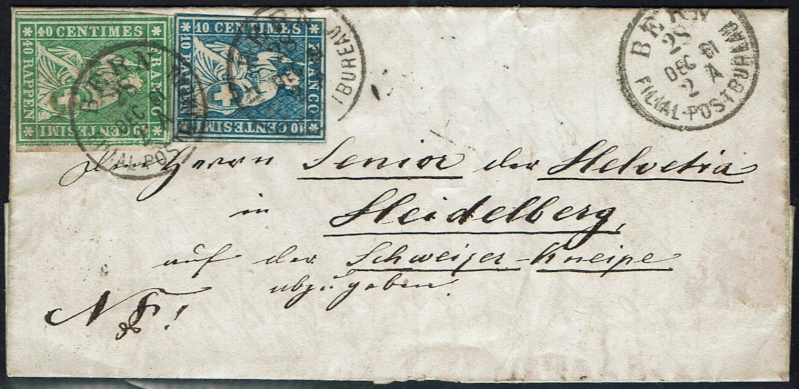 40 CENTIMES
40 RAPPEN
FRANCO
40 CENTESIMI
10 CENTIMES
10 RAPPEN
FRANCO
10 CENTESIMI
BERN
28
DEC 61
2 A
FILIAL-POSTBUREAU
Herrn Senior der Helvetia
in
Heidelberg,
auf der Schweizer-Kneipe
abzugeben.